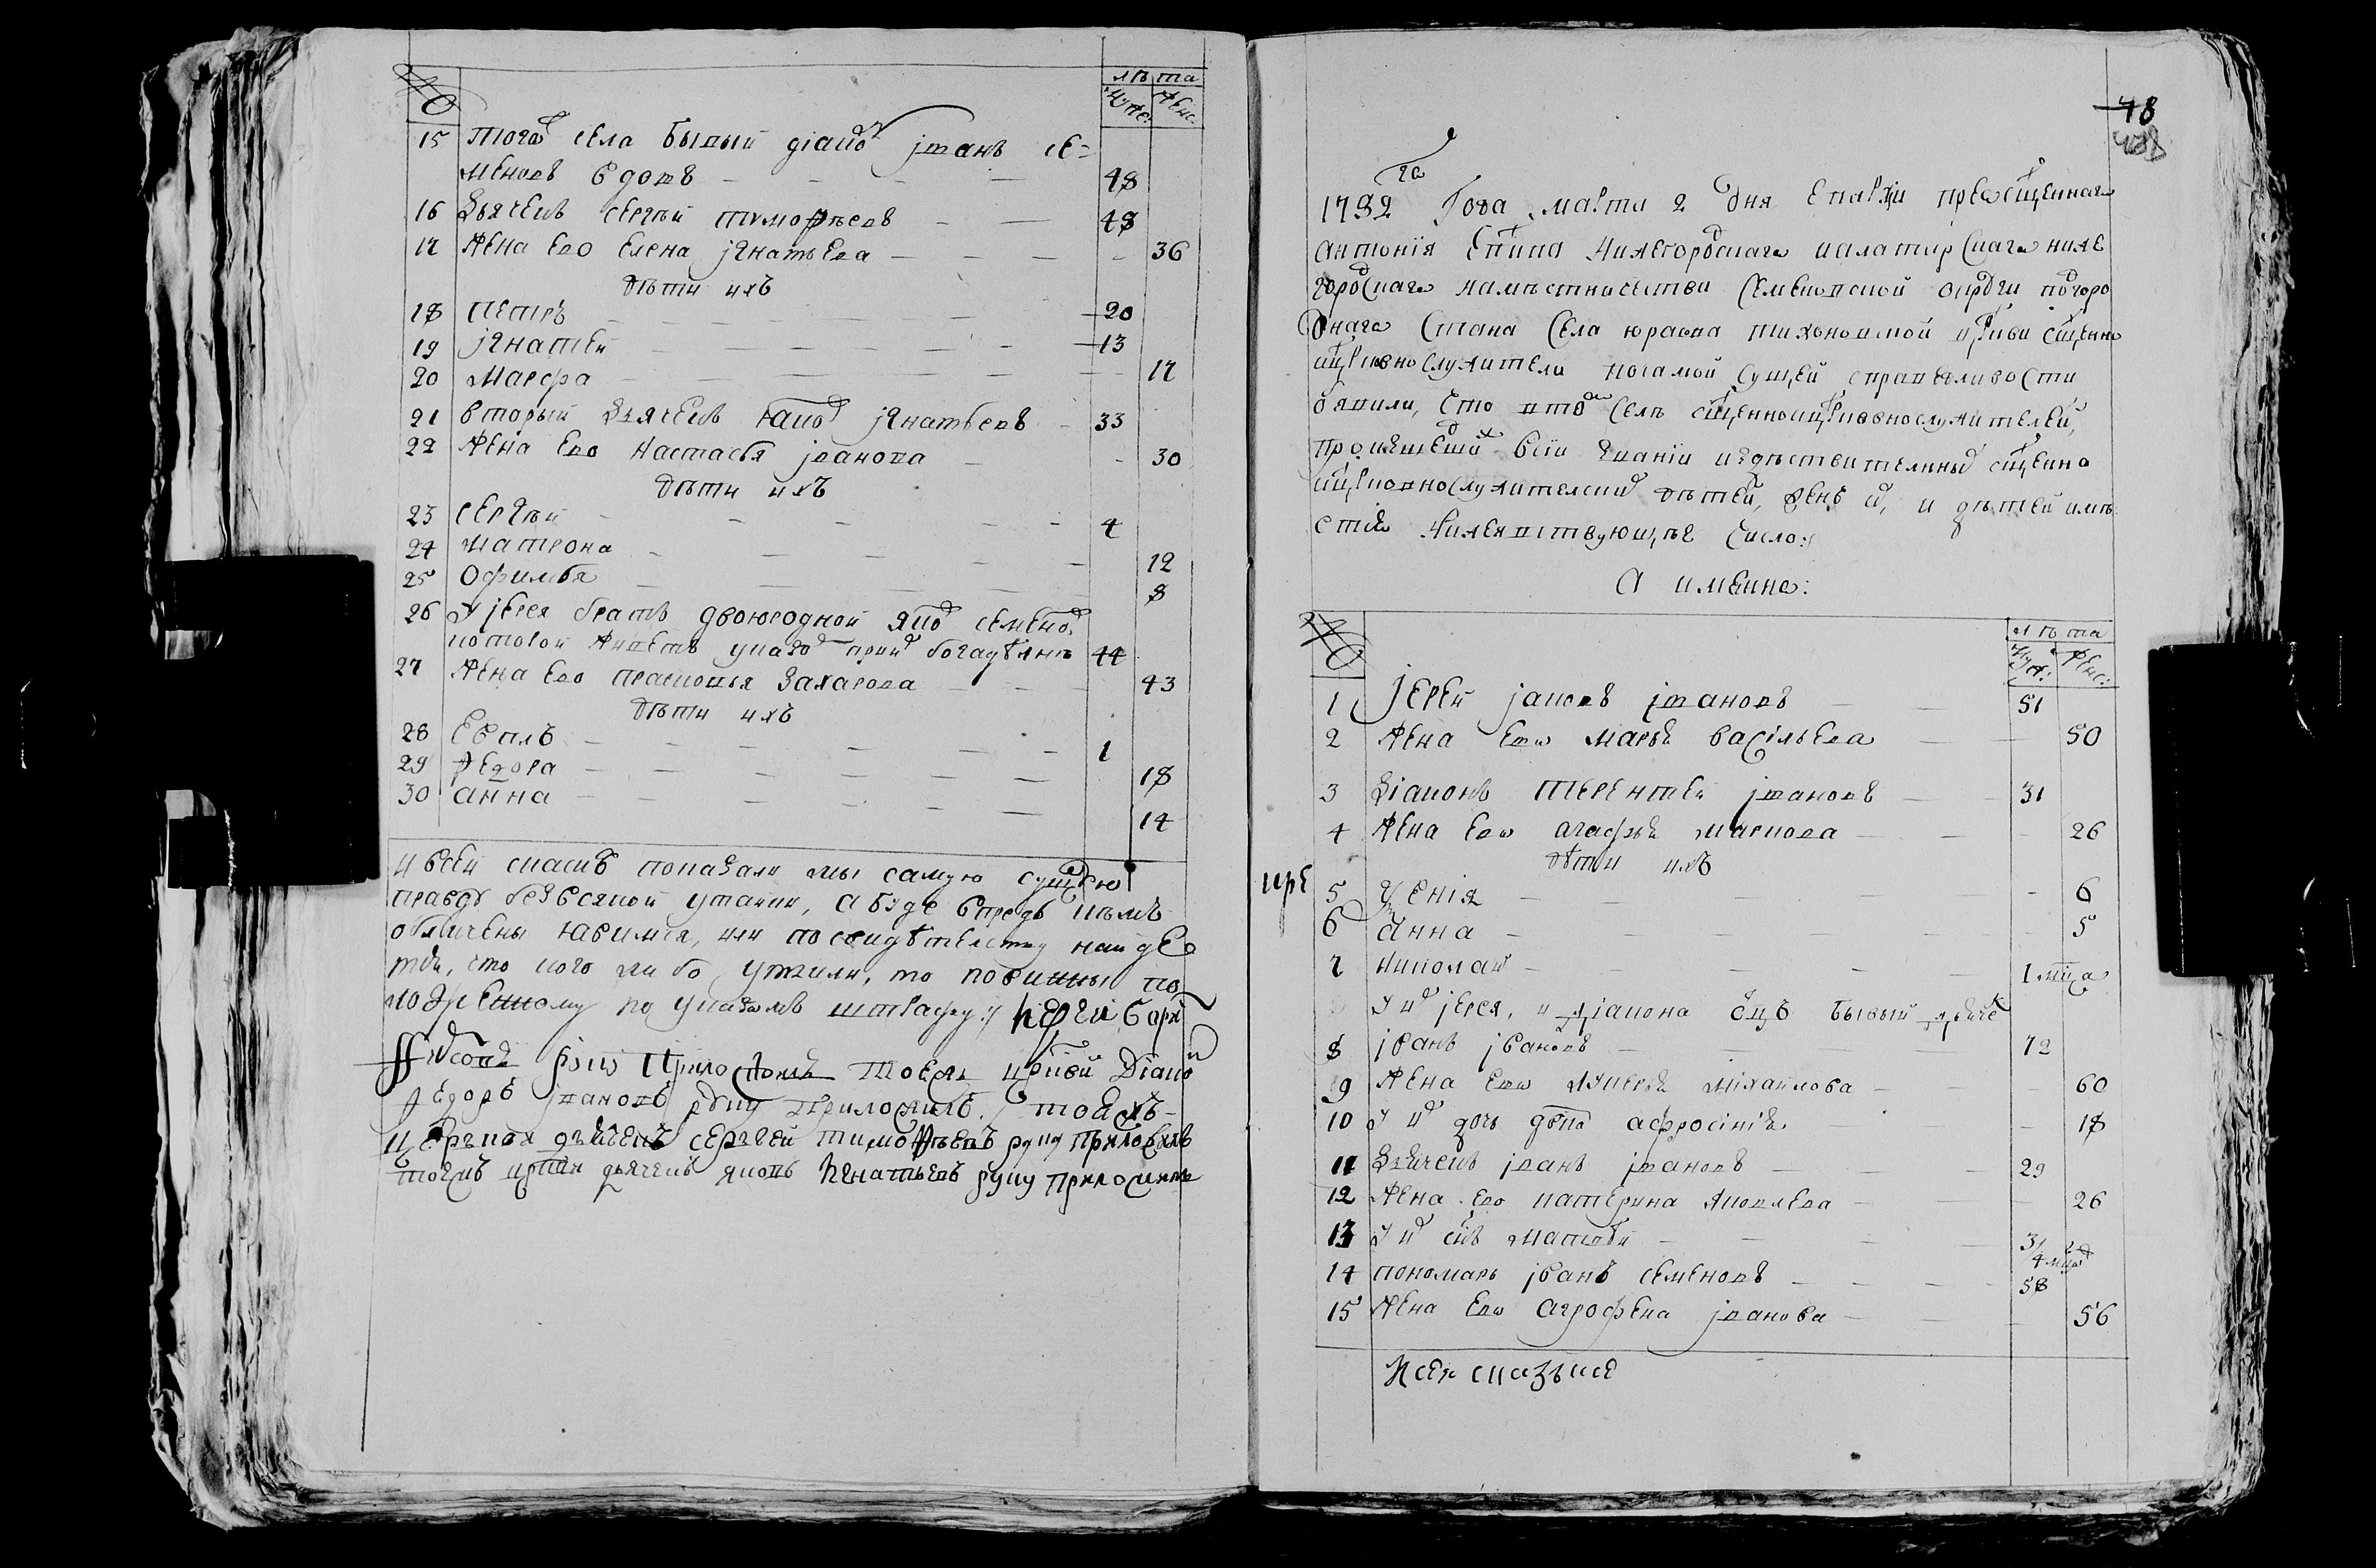 №
лѣта
муж: женс:
15 Тогож села бывый діако(н) іванъ се=
меновъ вдовъ 48
16 дьячекъ сергѣй тимофѣевъ 48
17 жена ево елена ігнатьева 36
дѣти ихъ
18 петръ 20
19 ігнатей 13
20 марфа 17
21 вторый дьячекъ яковъ ігнатьевъ 33
22 жена ево настасья іванова 30
дѣти ихъ
23 сергѣй 4
24 матрона 12
25 офимья 8
26 У іерея братъ двоюродной яковъ семеновъ
которой живетъ при богадѣлнѣ 44
27 жена ево прасковья захарова 43
дѣти ихъ
28 Евплъ 1
29 федора 18
30 анна 14
И всей сказкѣ показали мы самую сущую
правду безвсякой утайки, а буде впредь кѣмъ
обличены явимся, или посвидѣтелству найде
тся, что кого либо утаили, то повинны по
ложенному по указомъ штрафу:
руку приложилъ тоеяжъ церкви Diако
федоръ івановъ руку приложилъ. тоежъ
церкви дьячекъ сергѣй тимофѣевъ руку приложилъ
тоежъ церкви дьячекъ яковъ игнатьевъ руку приложилъ
48
488
1782 го Года марта 2 дня Епархіи преосщеннаго
антонія Епкпа нижегородскаго иалатырскаго ниже
городскаго намѣстничества Семеновской округи подгоро
днаго Стана Села юрасна тихвинской цркви сщенно
ицрковнослужители посамой сущей справѣдливости
обявили, что втомъ Селѣ сщенноицрковнослужителей,
всіи званіи идѣствителных сщенно
ицрковнослужителских дѣтей, женъ их, и дѣтей имѣ
ется нижеявствующѣе число:
А имянно:
№
лѣта
муж: женс:
1 Іерей іаковъ івановъ 51
2 жена ево марья васільева 50
3 діаконъ Терентей івановъ 31
4 жена ево агафья маркова 26
дѣти ихъ
5 ксенія 6
6 Анна 5
7 николай 1 мца
У их іерея, и діакона оцъ бывый дьячекъ
8 іванъ івановъ 72
9 жена ево лукерья міхайлова 60
10 У их дочь дѣвка афросінія 18
11 дьячекъ іванъ івановъ 29
12 жена ево катерина яковлева 26
13 У их снъ матвѣй 3/4 мца
14 пономарь іванъ семеновъ 58
15 жена ево агрофена іванова 56
Ксей сказке